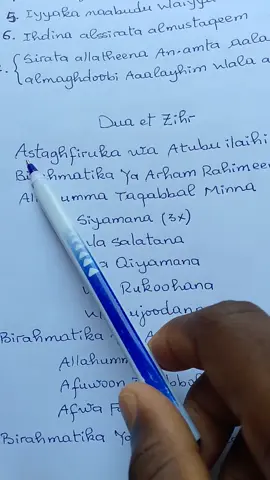 5. Iyyaka naabudu waiyya
6. Ihdina alssirata almustaqeem
Sirata allatheena An-amta aala
almaghdoobi Aaalayhim wala a
Dua et Zihr
Astaghfiruka wa Atubu ilaihi
Birahmatika Ya Arham Rahimeen
Allahumma Taqabbal Minna
Siyamana (3x)
Salatana
Qiyamana
Rukoohana
Birahmatika
Allahumm
Afuwoon
Afwa
Birahmatika Ya